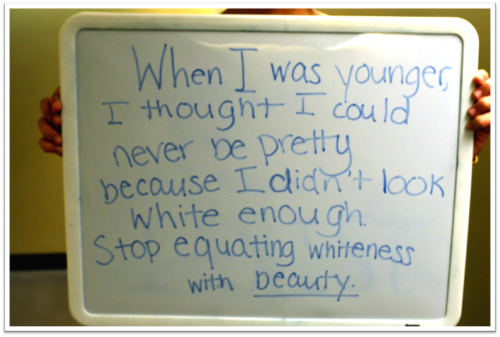 When I was younger,
I thought I could
never be pretty
because I didn't look
white enough.
Stop equating whiteness
with beauty.